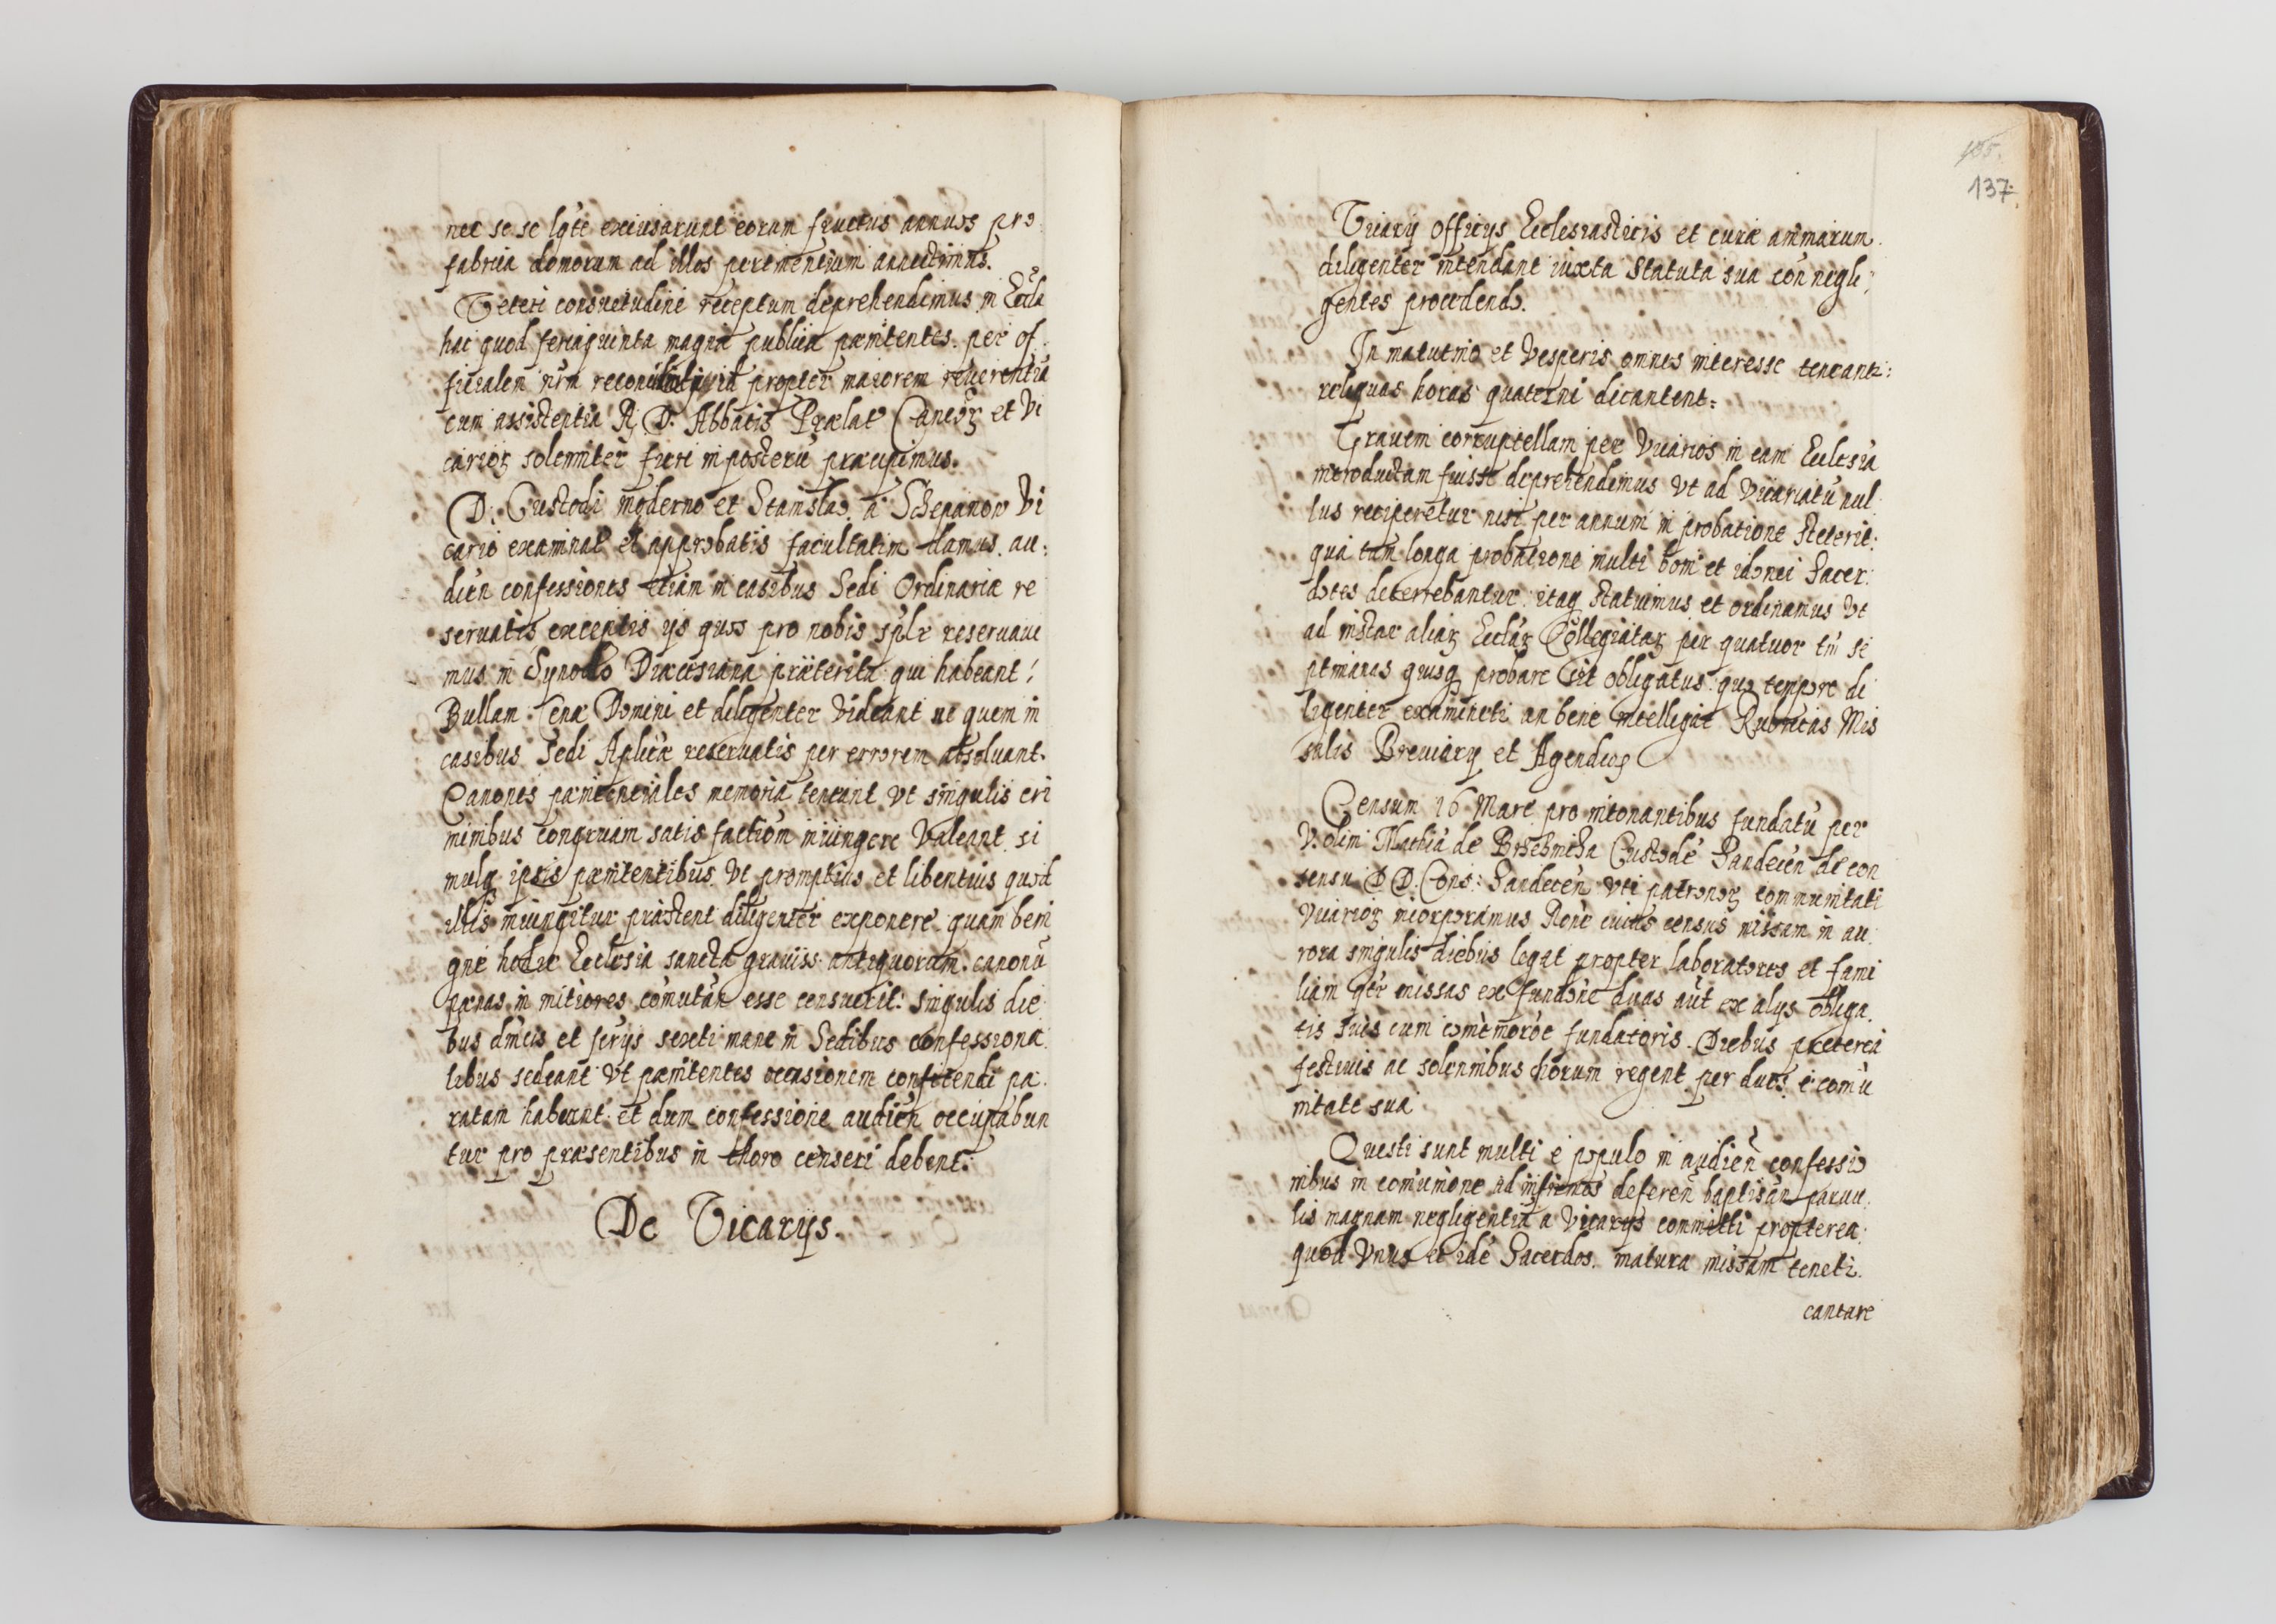 nec se se lg̃te excusarunt eorum fructus annuos pro
fabrica domorum ad illos pertinentium annectimus.
Veteri consuetudine receptum deprehendimus in Eccła
hac quod feria quinta magna publica pœnitentes per of
ficialem nr̃m id propter maiorem reuerentiã
cum assistentia R. D. Abbatis Prælat Cancoꝝ et Vi
carioꝝ solenniter fieri in posterũ præcipimus.
D. Custodi moderno et Stanislao a Sczepanow Vi
cario examinat et approbatis facultatem damus au:
dien confessiones etiam in casibus Sedi Ordinariæ re
seruatis exceptis ijs quos pro nobis splr reseruaui
mus in Synodo Diœcesana præterita qui habeant
Bullam Cenæ Domini et diligenter Videant ne quem in
casibus Sedi Aplicæ reseruatis per errorem absoluant.
Canones pœnitentiales memoria teneant Vt singulis cri
minibus congruam satisfactiõm iniungere Valeant si
mulq̃ ipsis pœnitentibus Vt promptius et libentius quod
illis iniungitur præstent diligenter exponere quam beni
gne hodie Ecclesia sancta grauiss: antiquorum canonũ
pœnas in mitiores cõmutãn esse censuerit: Singulis die
bus dñicis et ferijs sexti mane in Sedibus confessiona
libus sedeant Vt pœnitentes occasionem confitendi pa
ratam habeant et dum confessione audien occupabun
tur pro præsentibus in choro censeri debent.
De Vicarijs.
105.
137.
Vicarij Officijs Ecclesiasticis et curæ animarum
diligenter intendant iuxta Statuta sua con negli
gentes procedendo.
In matutino et Vesperis omnes interesse teneant:
reliquas horas quaterni dicantent:
Grauem corruptellam per Vicarios in eam Ecclesia
introductam fuisse deprehendimus Vt ad Vicariatũ nul
lus reciperetur nisi per annum in probatione steterit:
qua tam longa probatione multi boni et idonei Sacer
dotes deterrebantur: itaq̃ statuimus et ordinamus Vt
ad instar aliaꝝ Eccłaꝝ Collegiataꝝ per quatuor tm̃ se
ptimanas quisq̃ probare sit obligatus quo tempore di
ligenter examinet: an bene intelligat Rubricas Mis
salis Breuiarij et Agendoꝝ
Censum 16 Marc pro intonantibus fundatũ per
V. olim Mathia de Brzebnicha Custode Sandecen de con
sensu D D. Cons: Sandecen Vti patronoꝝ communitati
Vicarioꝝ incorporamus Rone cuius census missam in au
rora singulis diebus legat propter laboratores et fami
liam qẽr missas ex fundone duas aũt ex alijs obliga
tis suis cum cõmemorõe fundatoris. Diebus præterea
festiuis ac solennibus chorum regent per duos e comũ
nitate sua
Questi sunt multi e populo in audien confessio
nibus in comũnione ad infirmos deferen baptisãn paruu
lis magnam negligentia a Vicarijs committi propterea
quod Vnus et idẽ Sacerdos matura missam teneti.
cantare